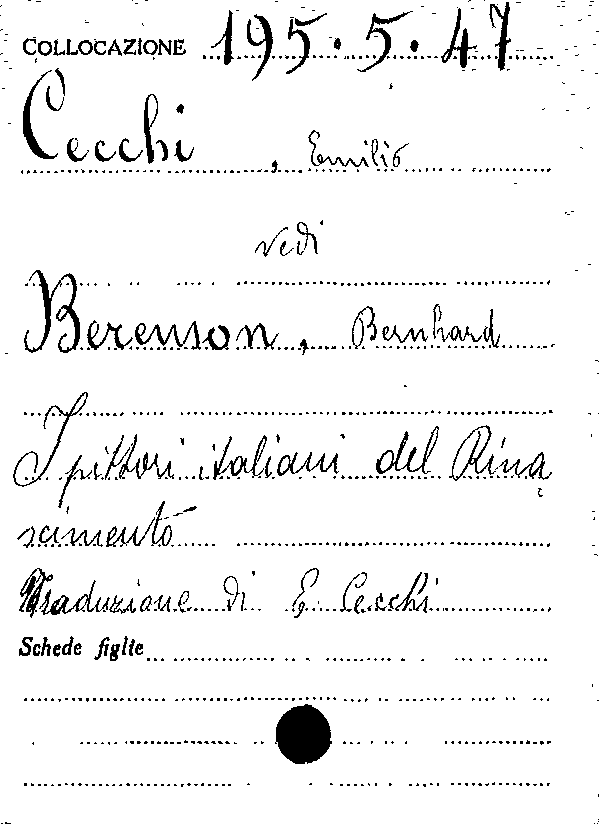 COLLOCAZIONE 195.5.47
Cecchi, Emilio
vedi
Berenson, Bernhard
I pittori italiani del Rina
scimento
Traduzione di E. Cecchi
Schede figlie